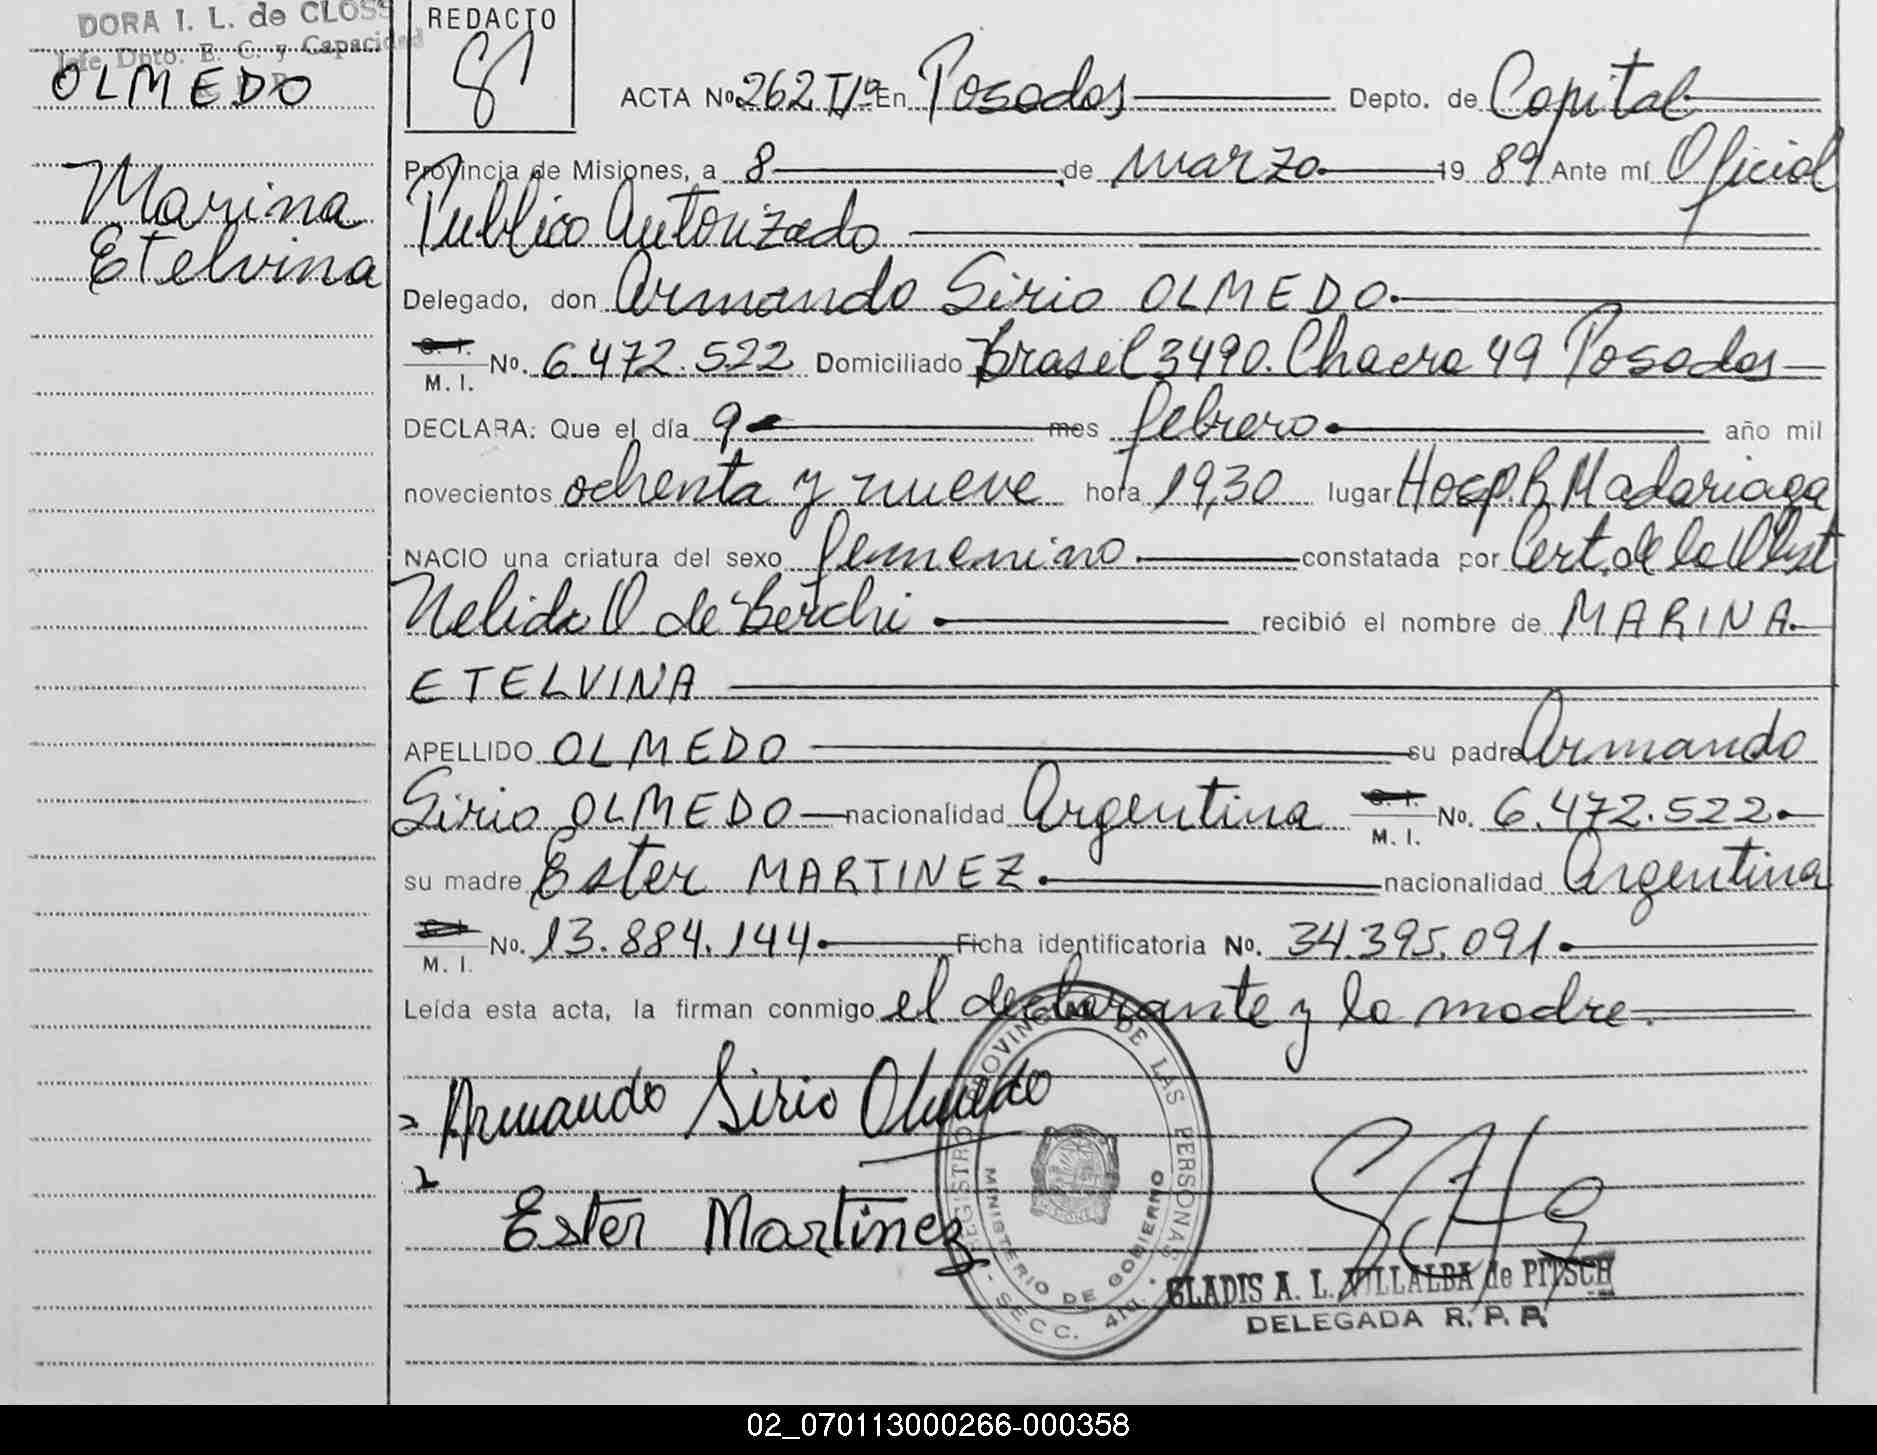 DORA I. L. de CLOSS
Jefe Dpto. E. C. y Capacidad
OLMEDO
Marina
Etelvina
REDACTO
ACTA No. 262 Tº 1º En Posadas Depto. de Capital
Provincia de Misiones, a 8 de marzo 19 89 Ante mí Oficial
Publico Autorizado
Delegado, don Armando Sirio OLMEDO.
C. I.
M. I. No. 6.472.522 Domiciliado Brasil 3490. Chacra 49 Posadas
DECLARA: Que el día 9 mes febrero año mil
novecientos ochenta y nueve hora 19,30 lugar Hosp. R. Madariaga
NACIO una criatura del sexo femenino constatada por Cert. de la Obst
Nelida O de Berchi recibió el nombre de MARINA
ETELVINA
APELLIDO OLMEDO su padre Armando
Sirio OLMEDO nacionalidad Argentina C. I. M. I. No. 6.472.522
su madre Ester MARTINEZ nacionalidad Argentina
C. I. M. I. No. 13.884.144 Ficha identificatoria No. 34.395.091
Leída esta acta, la firman conmigo el declarante y la madre.
Armando Sirio Olmedo
Ester Martinez
REGISTRO PROVINCIAL DE LAS PERSONAS
MINISTERIO DE GOBIERNO
SECC. 4ta.
GLADIS A. L. VILLALBA de PITSCH
DELEGADA R. P. P.
02_070113000266-000358